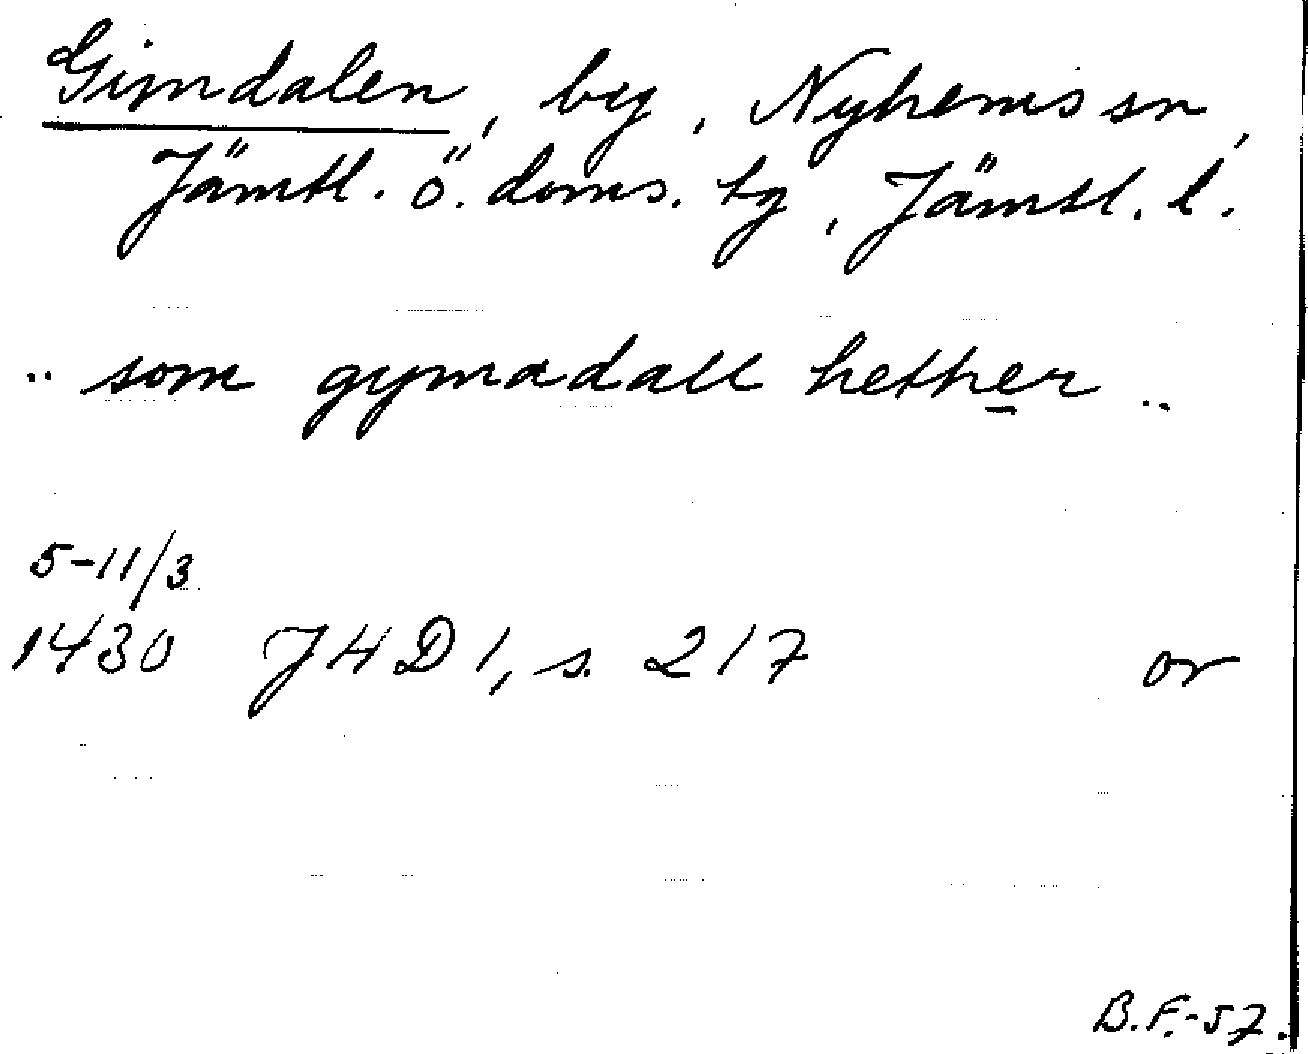 Gimdalen, by, Nyhems sn,
Jämtl. ö. doms. tg, Jämtl. l.
.. som gymadall hether ..
5-11/3
1430 JHD 1, s. 217 or
B.F.-57.